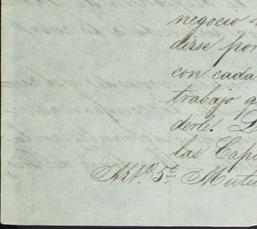 negocio
dirse por
con cada
trabajo q
derle. L
las Capi
Art.º 5.º Mutu